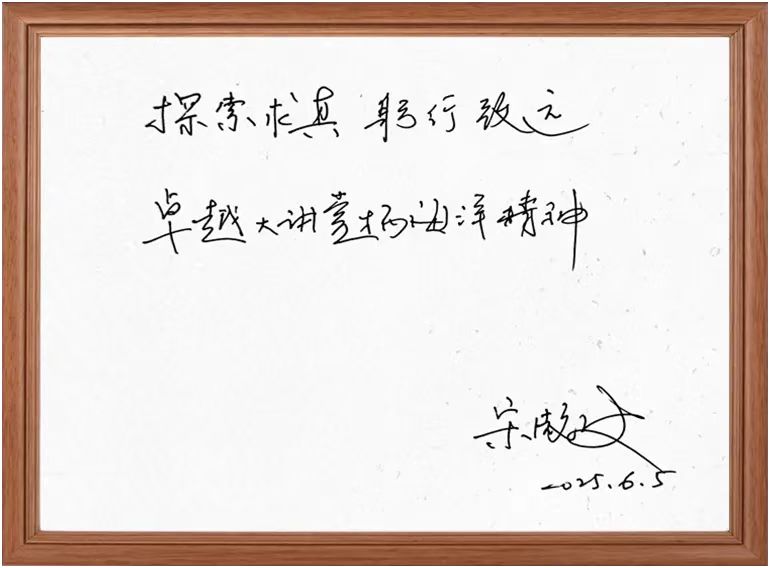 探索求真 躬行致远
卓越大讲堂扬海洋精神
宋
2025.6.5